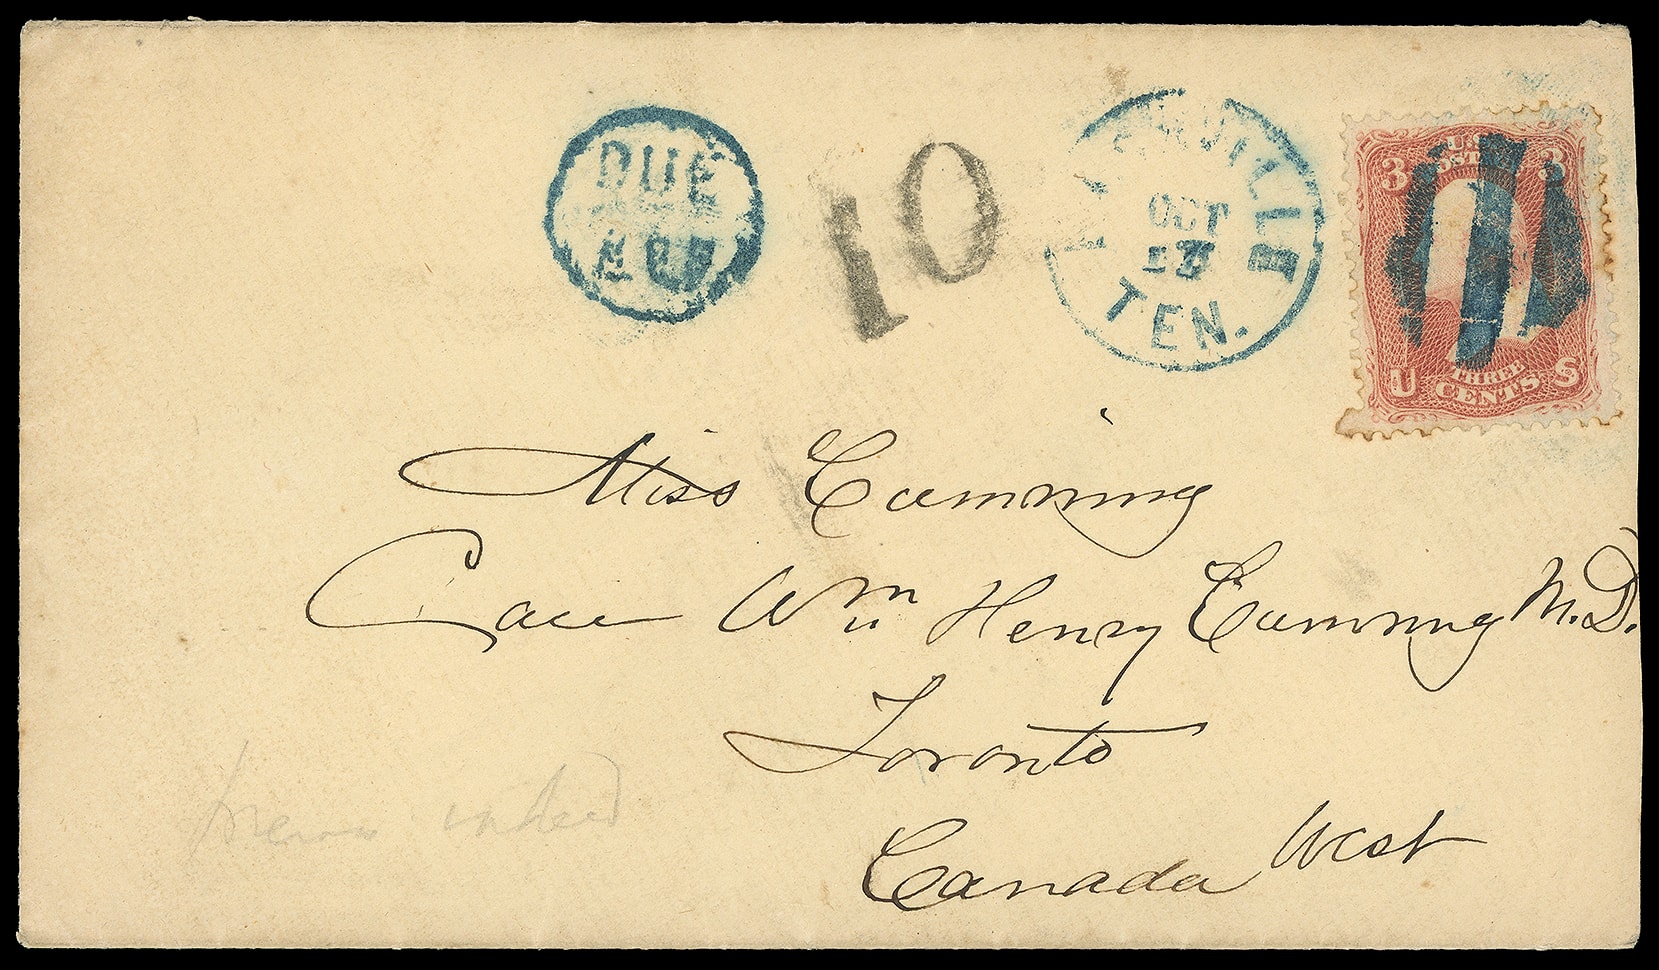 DUE
10
NASHVILLE
OCT
TEN.
3
3
U.S.
POSTAGE
U S
THREE
CENTS
Miss Cumming
Care Wm Henry Cumming M.D.
Toronto
Canada West